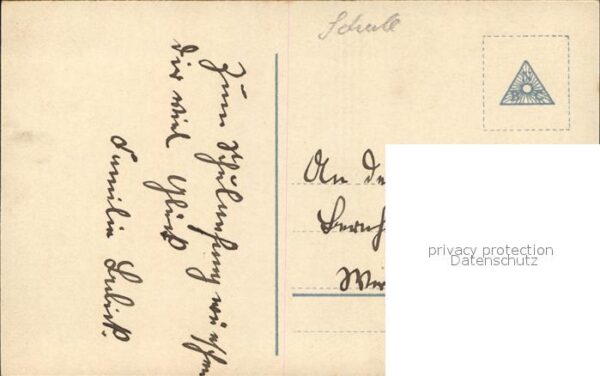 Schule
Zum Schulanfang wünschen
dir viel Glück
Familie
An de
Bernh
Wir
privacy protection
Datenschutz